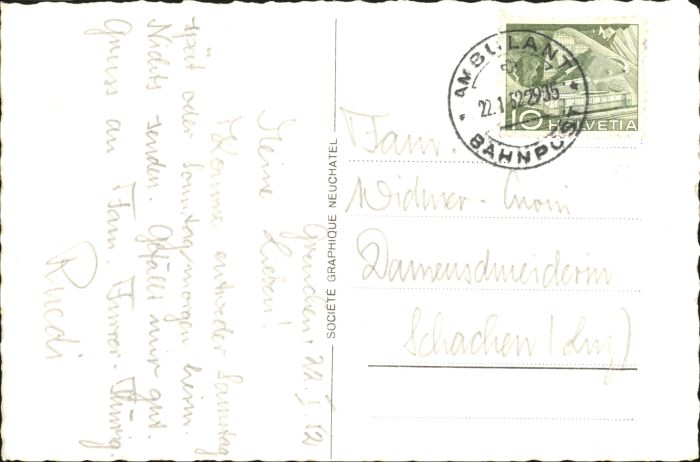 Grenchen, 22. I. 52
Meine Lieben!
Komme entweder Samstag
spät oder Sonntagmorgen heim.
Nichts senden. Gefällt mir gut.
Gruss an Fam. Furrer-Thürig.
Ruedi
SOCIÉTÉ GRAPHIQUE NEUCHATEL
AMBULANT
22.1.52
BAHNPOST
10 HELVETIA
Fam.
Widmer-
Damenschneiderin
Schachen (Luz)